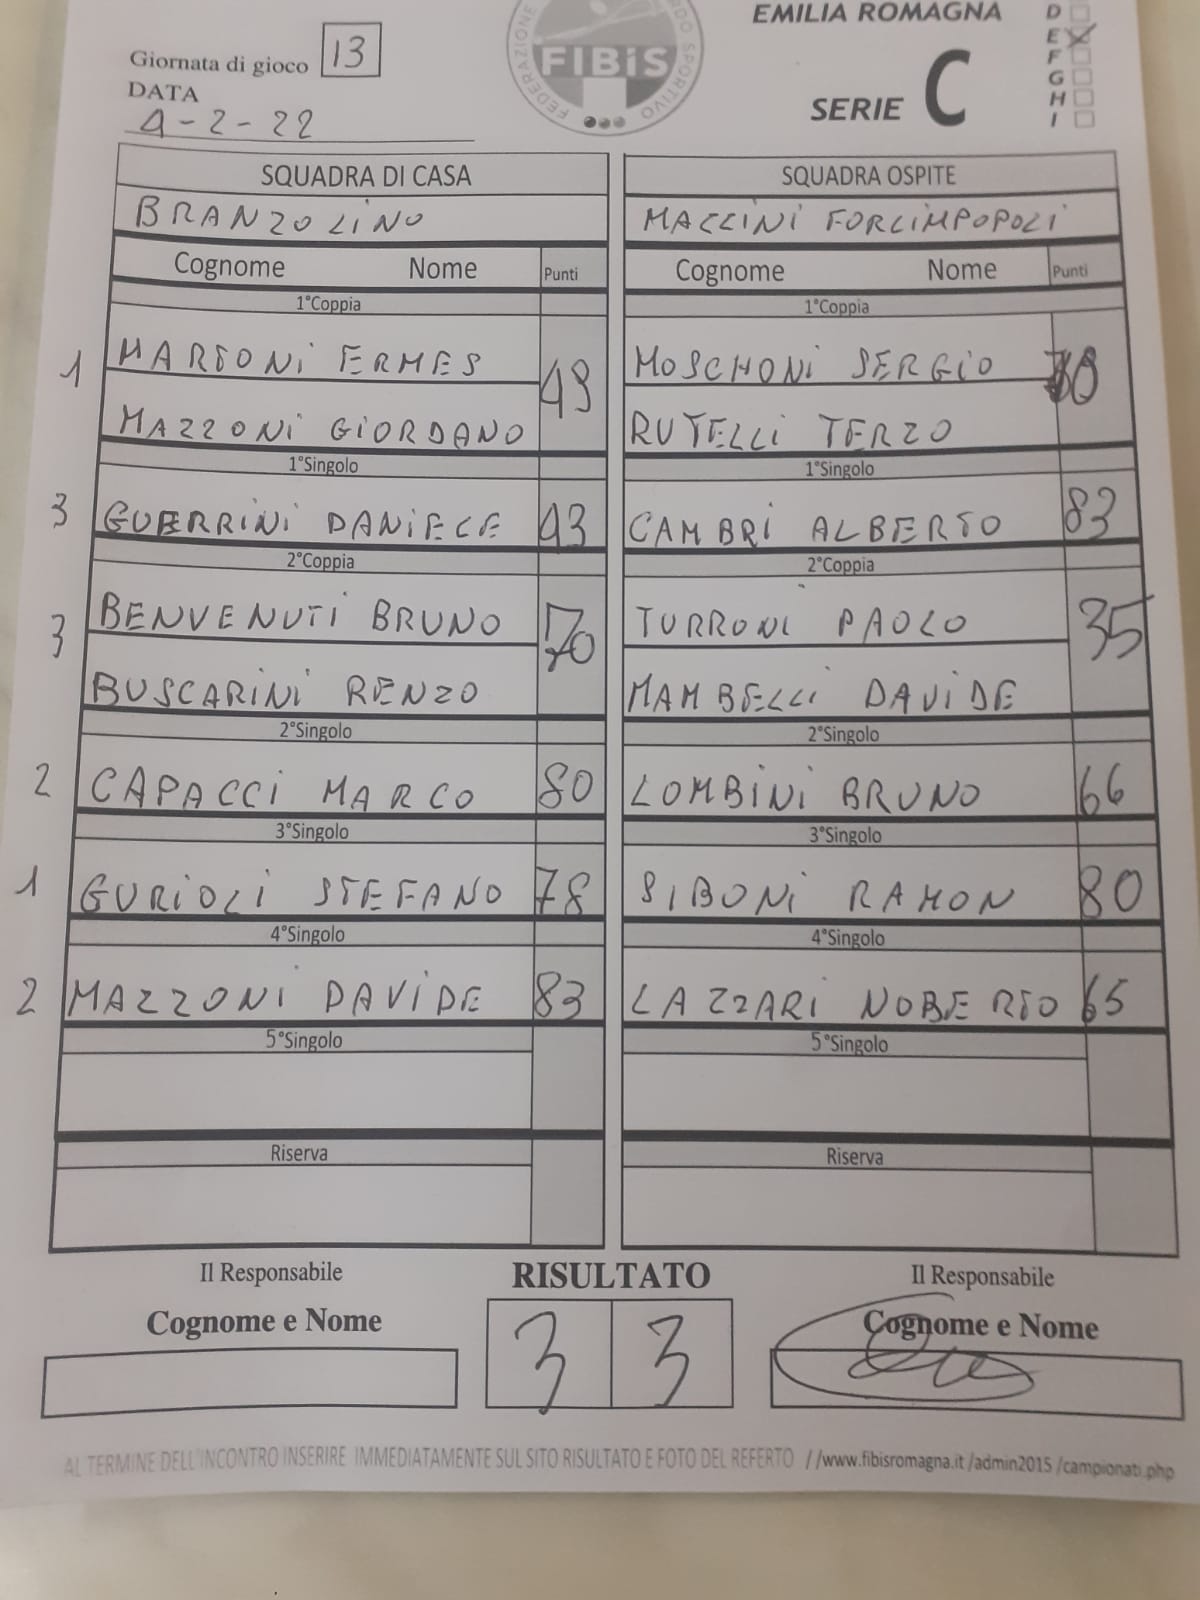 EMILIA ROMAGNA
SERIE C
D
E
F
G
H
I
FEDERAZIONE
SPORTIVO
FIBiS
Giornata di gioco 13
DATA
4-2-22
SQUADRA DI CASA
BRANZOLINO
Cognome Nome Punti
1°Coppia
1 MARTONI ERMES 49
MAZZONI GIORDANO
1°Singolo
3 GUERRINI DANIELE 43
2°Coppia
3 BENVENUTI BRUNO 70
BUSCARINI RENZO
2°Singolo
2 CAPACCI MARCO 80
3°Singolo
1 GURIOLI STEFANO 78
4°Singolo
2 MAZZONI DAVIDE 83
5°Singolo
Riserva
SQUADRA OSPITE
MACCINI FORLIMPOPOLI
Cognome Nome Punti
1°Coppia
MOSCHONI SERGIO
RUTELLI TERZO
1°Singolo
CAMBRI ALBERTO 83
2°Coppia
TURRONI PAOLO 35
MAMBELLI DAVIDE
2°Singolo
LOMBINI BRUNO 66
3°Singolo
SIBONI RAMON 80
4°Singolo
LAZZARI NOBERTO 65
5°Singolo
Riserva
Il Responsabile
Cognome e Nome
RISULTATO
3 3
Il Responsabile
Cognome e Nome
AL TERMINE DELL'INCONTRO INSERIRE IMMEDIATAMENTE SUL SITO RISULTATO E FOTO DEL REFERTO //www.fibisromagna.it/admin2015/campionati.php